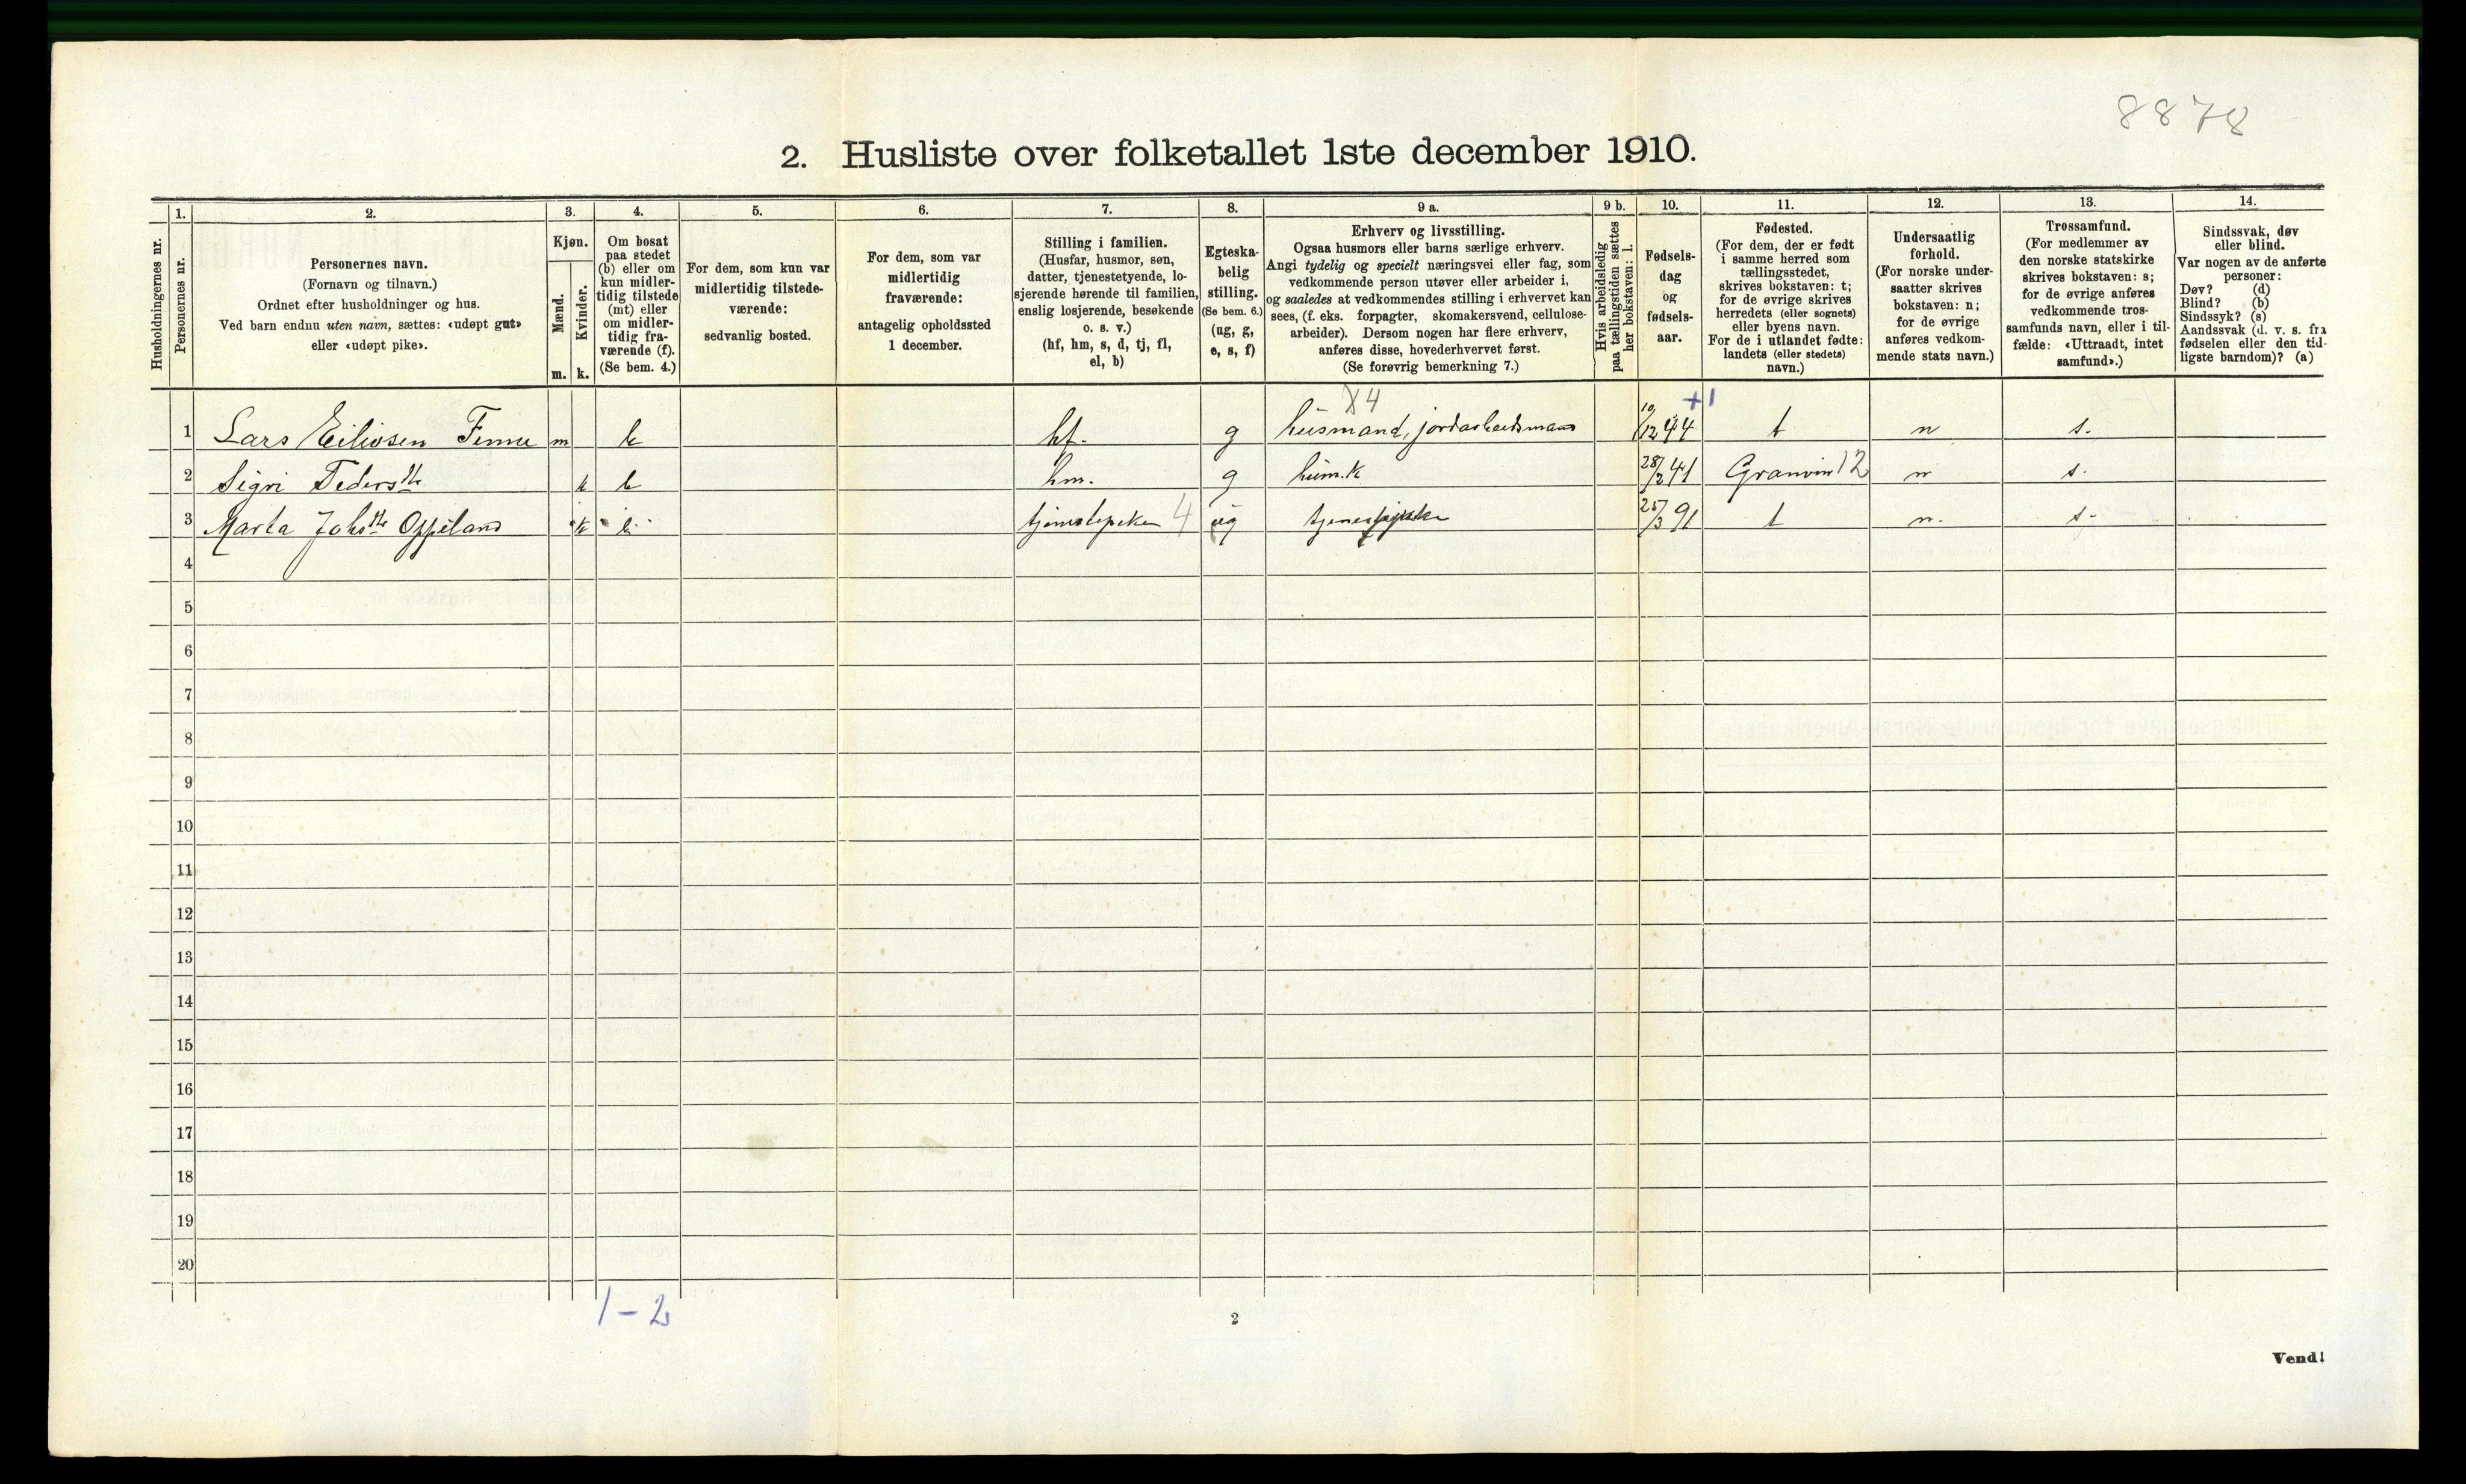 8878
2. Husliste over folketallet 1ste december 1910.
Husholdningernes nr.
1.
Personernes nr.
2.
Personernes navn.
(Fornavn og tilnavn.)
Ordnet efter husholdninger og hus.
Ved barn endnu uten navn, sættes: «udøpt gut»
eller «udøpt pike».
3.
Kjøn.
Mænd.
Kvinder.
m. k.
4.
Om bosat
paa stedet
(b) eller om
kun midler-
tidig tilstede
(mt) eller
om midler-
tidig fra-
værende (f).
(Se bem. 4.)
5.
For dem, som kun var
midlertidig tilstede-
værende:
sedvanlig bosted.
6.
For dem, som var
midlertidig
fraværende:
antagelig opholdssted
1 december.
7.
Stilling i familien.
(Husfar, husmor, søn,
datter, tjenestetyende, lo-
sjerende hørende til familien,
enslig losjerende, besøkende
o. s. v.)
(hf, hm, s, d, tj, fl,
el, b)
8.
Egteska-
belig
stilling.
(Se bem. 6.)
(ug, g,
e, s, f)
9 a.
Erhverv og livsstilling.
Ogsaa husmors eller barns særlige erhverv.
Angi tydelig og specielt næringsvei eller fag, som
vedkommende person utøver eller arbeider i,
og saaledes at vedkommendes stilling i erhvervet kan
sees, (f. eks. forpagter, skomakersvend, cellulose-
arbeider). Dersom nogen har flere erhverv,
anføres disse, hovederhvervet først.
(Se forøvrig bemerkning 7.)
9 b.
Hvis arbeidsledig
paa tællingstiden sættes
her bokstaven: l.
10.
Fødsels-
dag
og
fødsels-
aar.
11.
Fødested.
(For dem, der er født
i samme herred som
tællingsstedet,
skrives bokstaven: t;
for de øvrige skrives
herredets (eller sognets)
eller byens navn.
For de i utlandet fødte:
landets (eller stedets)
navn.)
12.
Undersaatlig
forhold.
(For norske under-
saatter skrives
bokstaven: n;
for de øvrige
anføres vedkom-
mende stats navn.)
13.
Trossamfund.
(For medlemmer av
den norske statskirke
skrives bokstaven: s;
for de øvrige anføres
vedkommende tros-
samfunds navn, eller i til-
fælde: «Uttraadt, intet
samfund».)
14.
Sindssvak, døv
eller blind.
Var nogen av de anførte
personer:
Døv? (d)
Blind? (b)
Sindssyk? (s)
Aandssvak (d. v. s. fra
fødselen eller den tid-
ligste barndom)? (a)
X4 +1
1 Lars Eilivsen m b hf. g husmand, jordarbeidsmand 10/12 44 t n s.
2 Sigri k b hm. g 28/2 41 Granvin 12 n s.
3 Marta k b tjenestepike 4 ug 25/3 91 t n. s.
4
5
6
7
8
9
10
11
12
13
14
15
16
17
18
19
20
1-2
2
Vend!